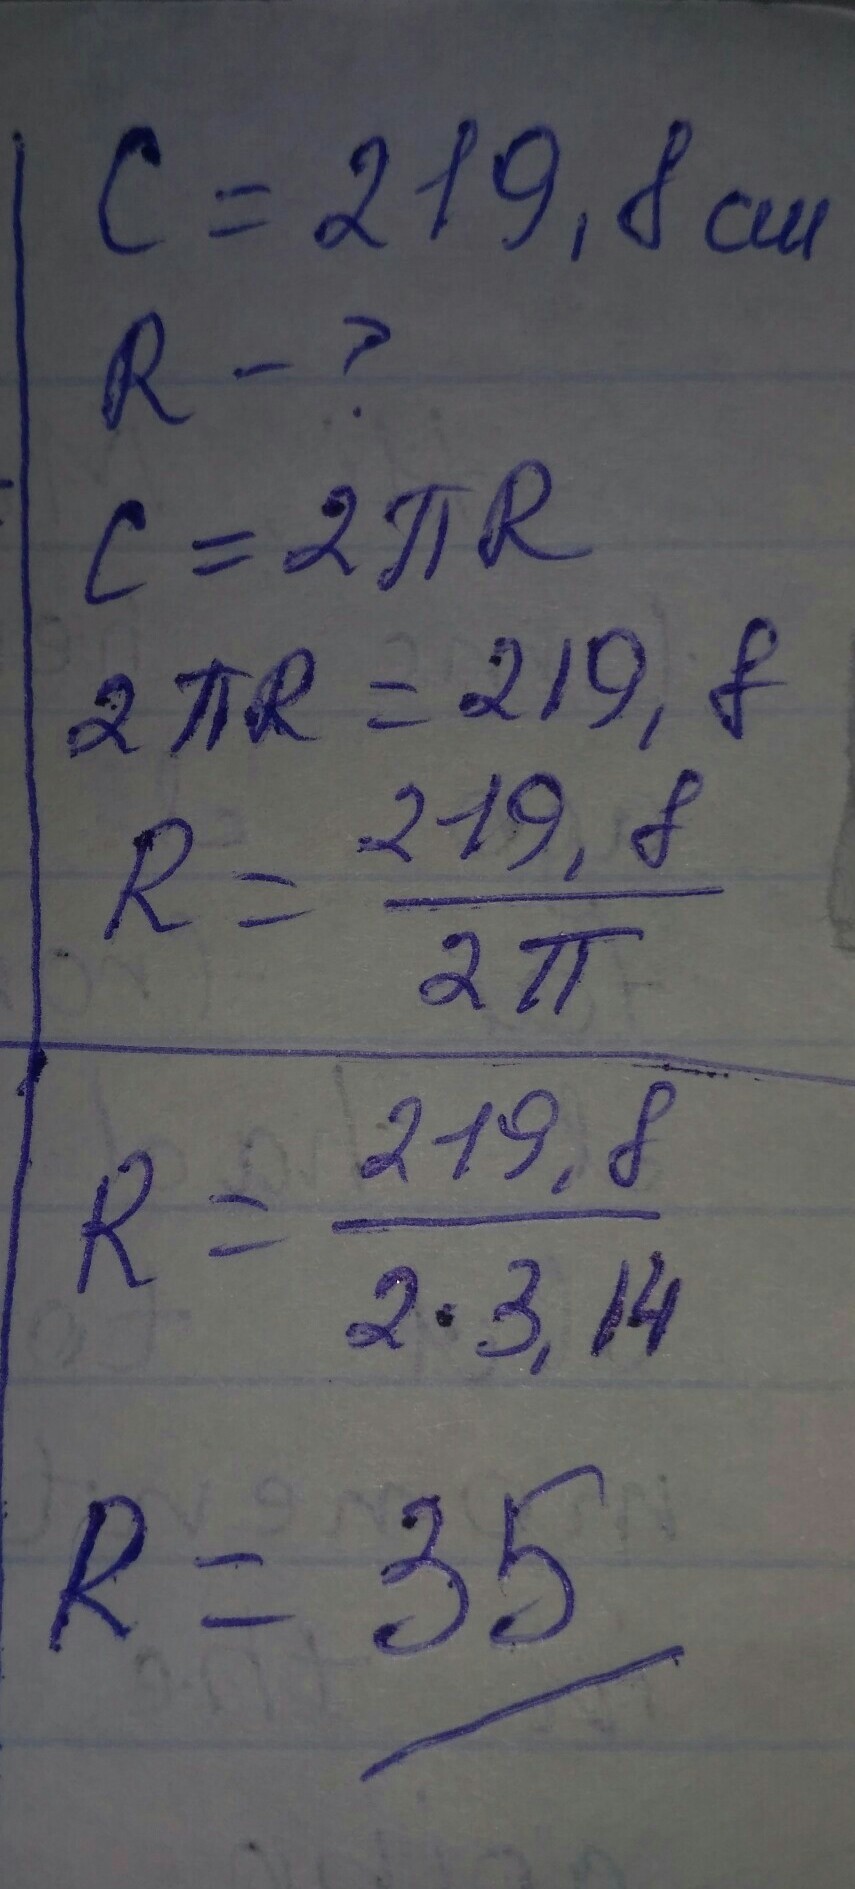 C = 219,8 см
R - ?
C = 2πR
2πR = 219,8
R = 219,8 / 2π
R = 219,8 / 2·3,14
R = 35